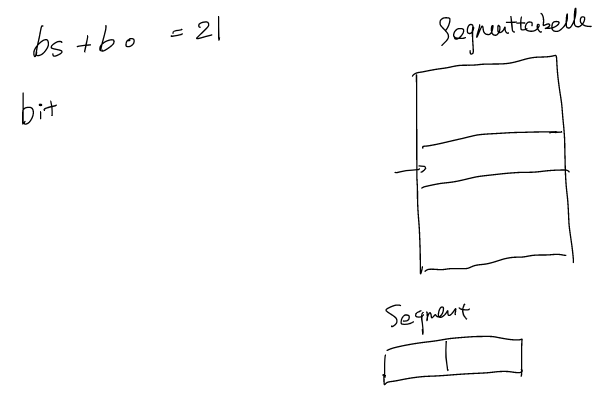 bs + bo = 21
bit
Segmenttabelle
Segment